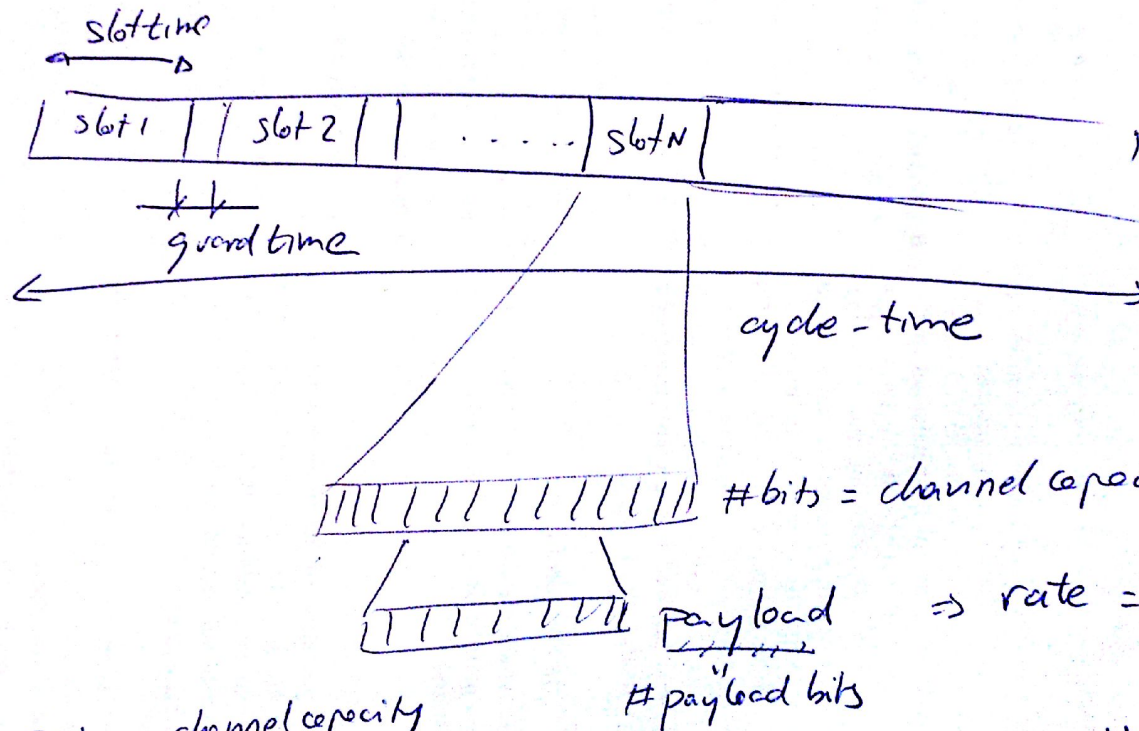 slot time
slot 1 slot 2 ..... slot N
guard time
cycle-time
#bits = channel capac
payload ⇒ rate =
"
#payload bits
channel capacity